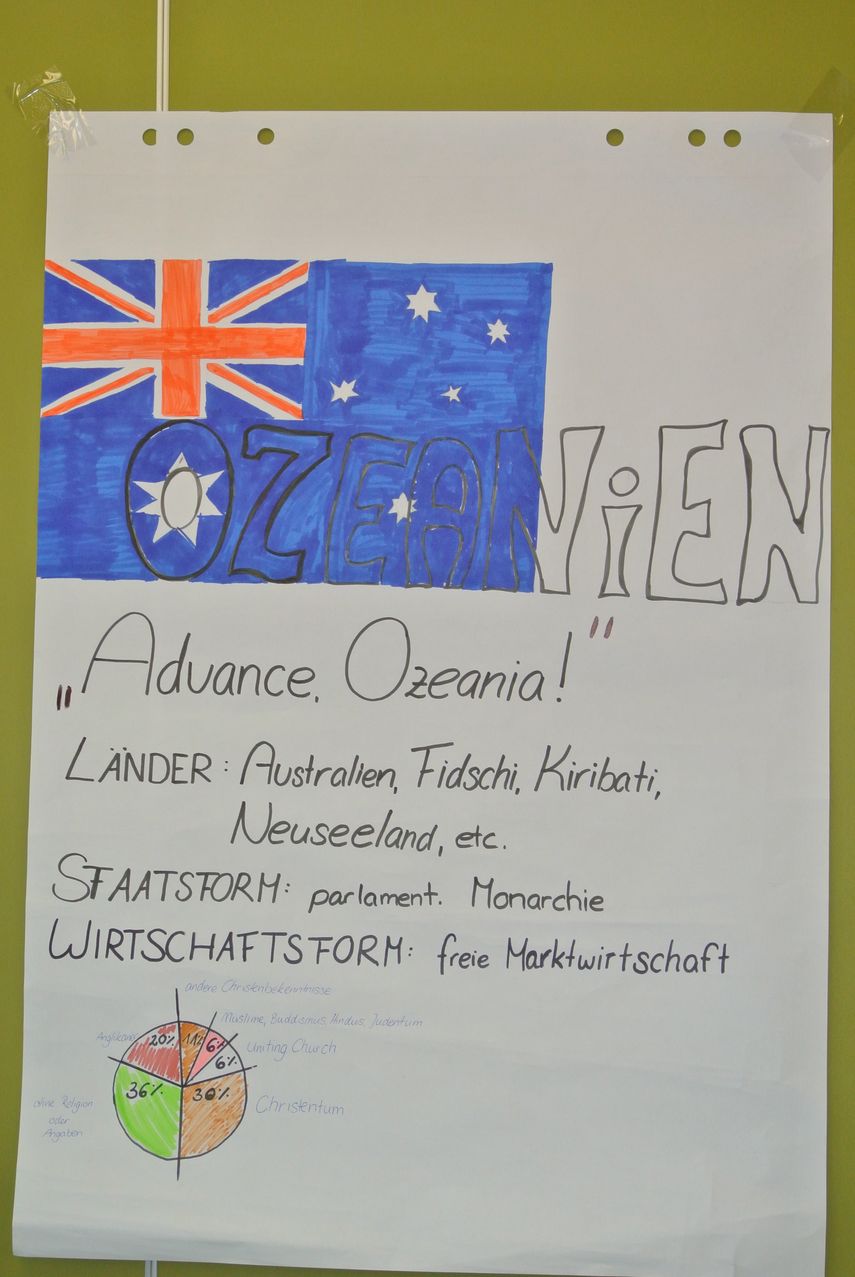 OZEANiEN
„Advance, Ozeania!"
LÄNDER: Australien, Fidschi, Kiribati,
Neuseeland, etc.
STAATSFORM: parlament. Monarchie
WIRTSCHAFTSFORM: freie Marktwirtschaft
andere Christenbekenntnisse
Muslime, Buddismus, Hindus, Judentum
Anglikaner
20%
11%
6%
Uniting Church
6%
36%
30%
Christentum
ohne Religion
oder
Angaben